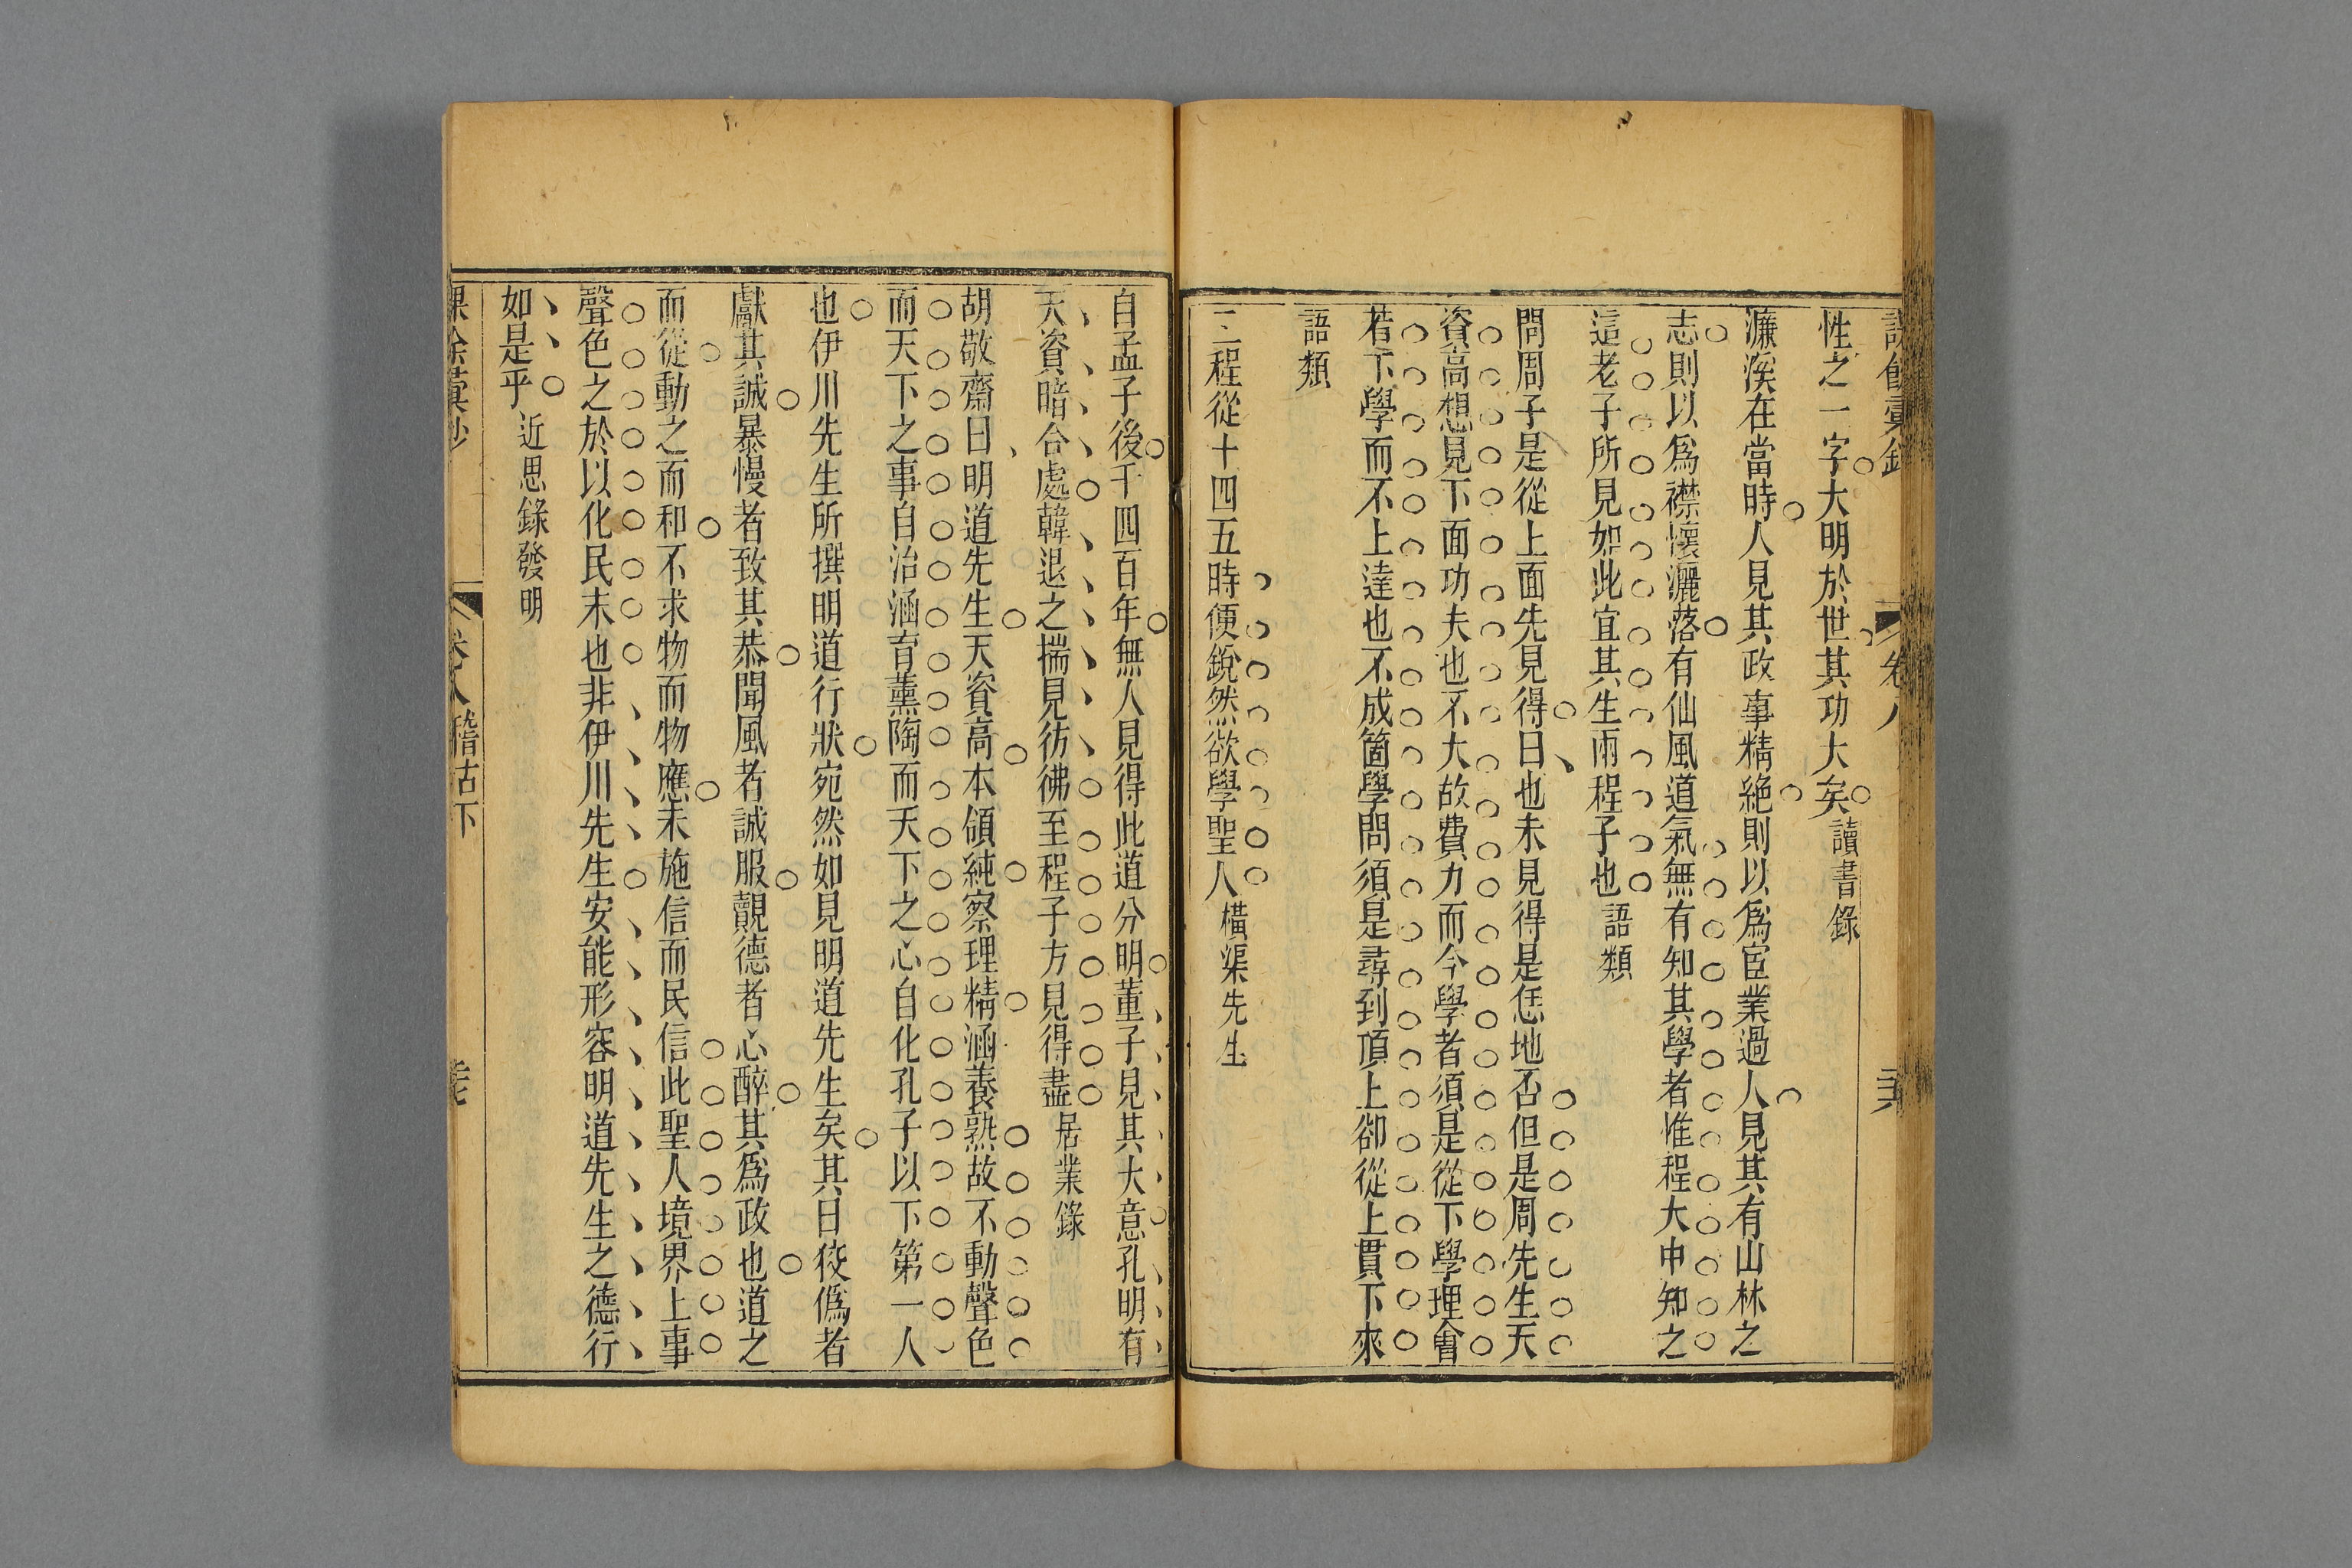 卷八
性之一字大明於世其功大矣讀書錄
濂溪在當時人見其政事精絶則以爲宦業過人見其有山林之
志則以爲襟懷灑落有仙風道氣無有知其學者惟程大中知之
這老子所見如此宜其生兩程子也語類
問周子是從上面先見得曰也未見得是恁地否但是周先生天
資高想見下面功夫也不大故費力而今學者須是從下學理會
若下學而不上達也不成箇學問須是尋到頂上卻從上貫下來
語類
二程從十四五時便銳然欲學聖人橫渠先生
自孟子後千四百年無人見得此道分明董子見其大意孔明有
天資暗合處韓退之揣見彷彿至程子方見得盡居業錄
胡敬齋曰明道先生天資高本領純察理精涵養熟故不動聲色
而天下之事自治涵育薰陶而天下之心自化孔子以下第一人
也伊川先生所撰明道行狀宛然如見明道先生矣其曰狡僞者
獻其誠暴慢者致其恭聞風者誠服覿德者心醉其爲政也道之
而從動之而和不求物而物應未施信而民信此聖人境界上事
聲色之於以化民末也非伊川先生安能形容明道先生之德行
如是乎近思錄發明
卷八 稽古下